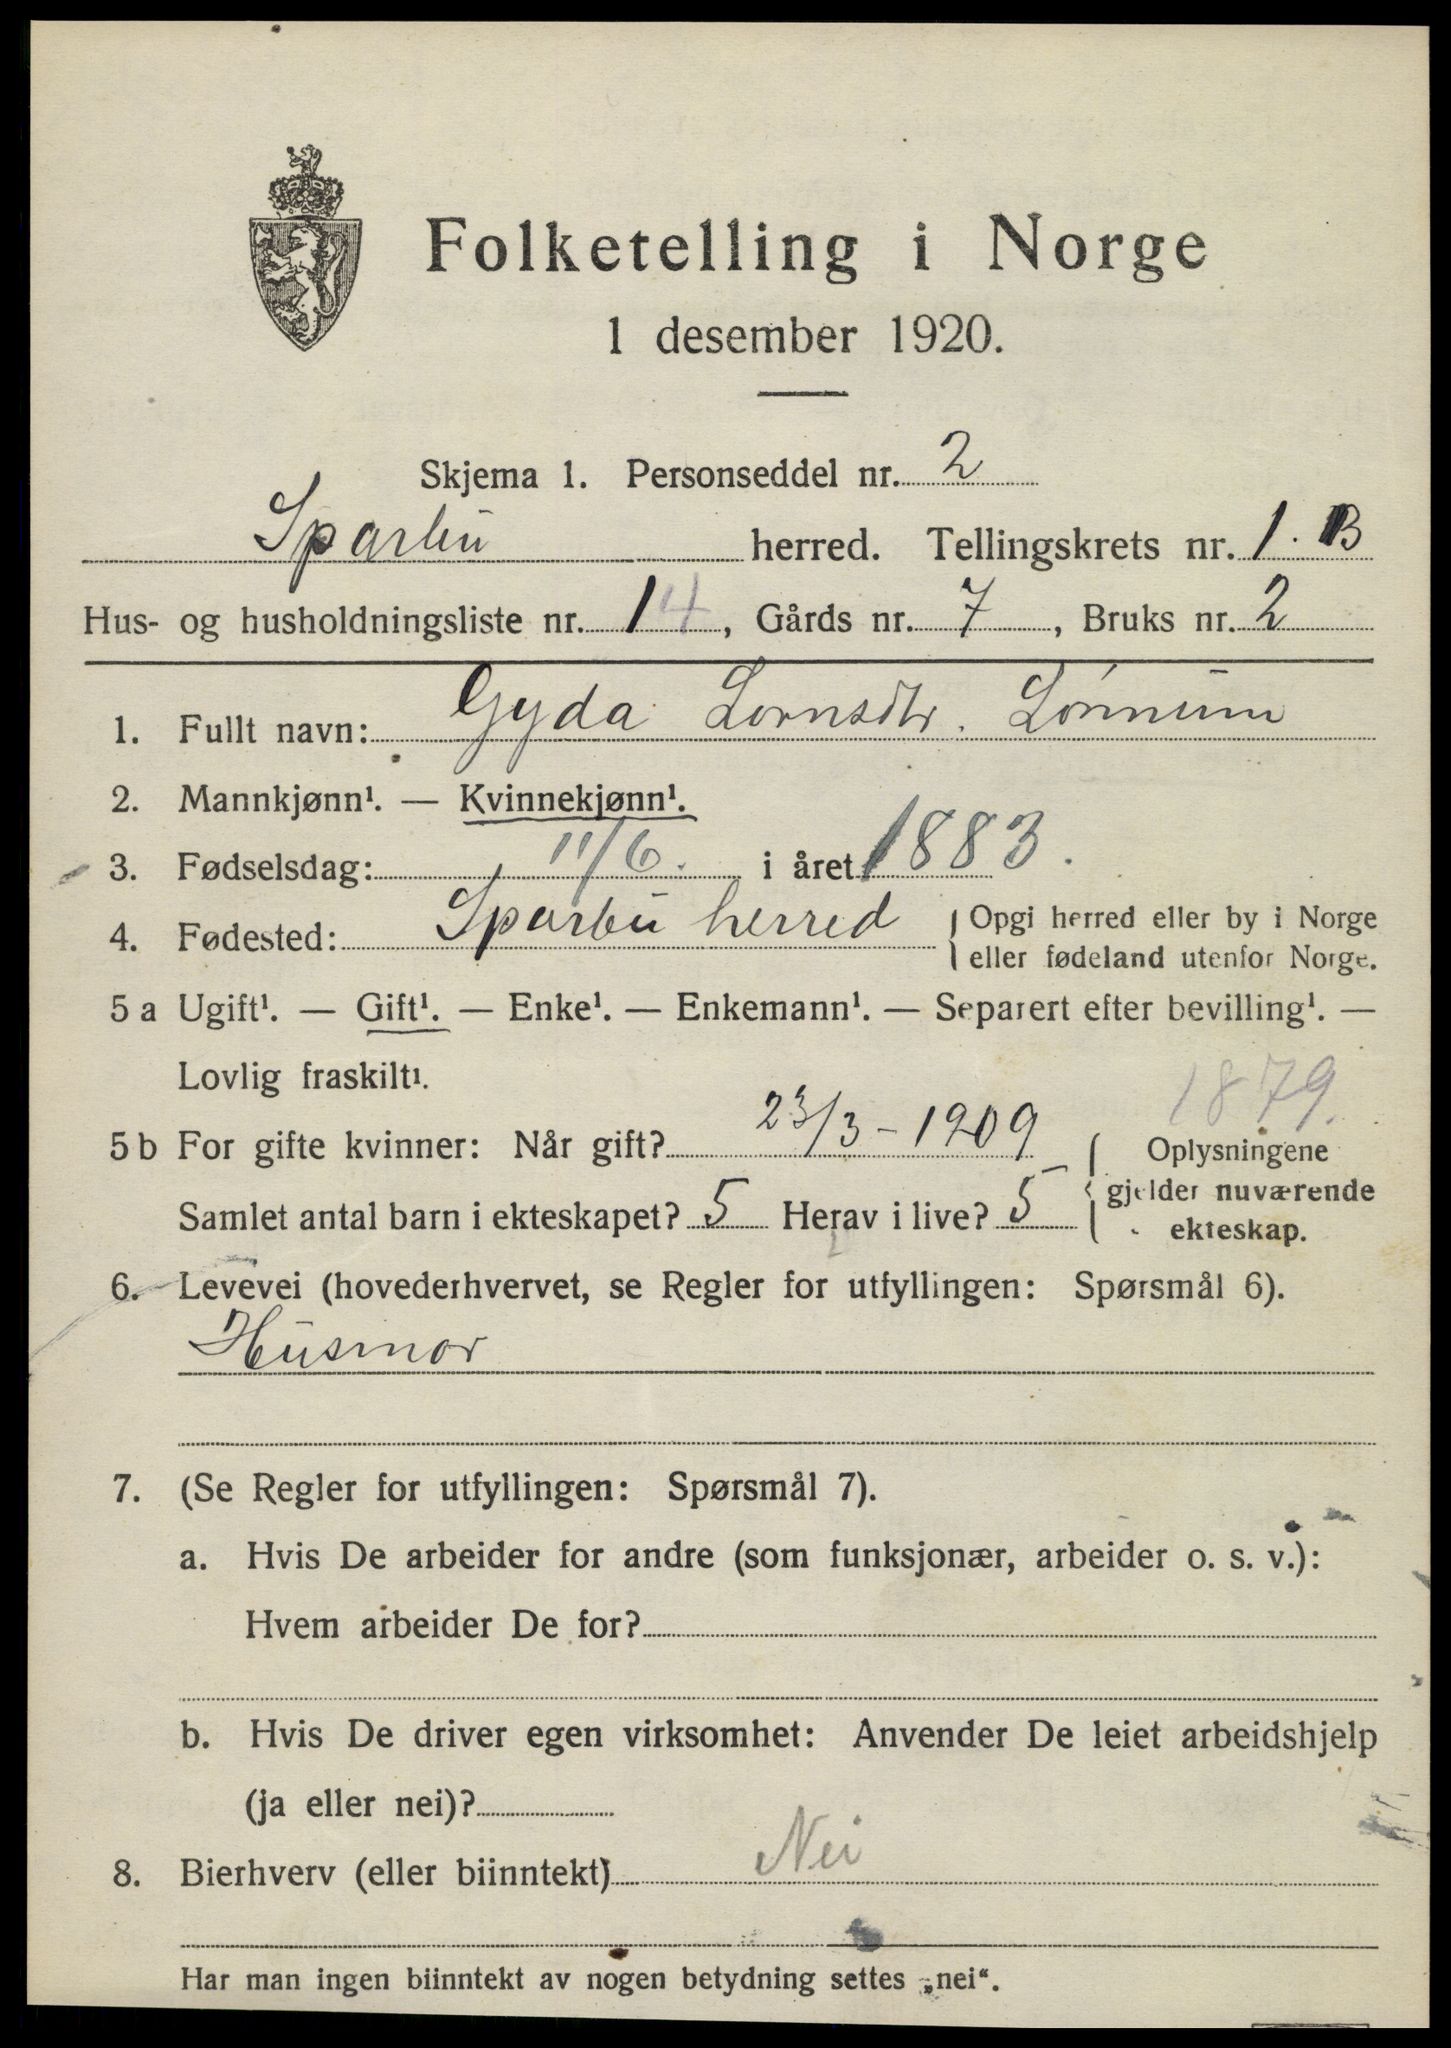 Folketelling i Norge
1 desember 1920.
Skjema 1. Personseddel nr. 2
Sparbu herred. Tellingskrets nr. 1. B
Hus- og husholdningsliste nr. 14, Gårds nr. 7, Bruks nr. 2
1. Fullt navn: Gyda Lornsdtr. Lønnum
2. Mannkjønn¹. — Kvinnekjønn¹.
3. Fødselsdag: 11/6. i året 1883.
4. Fødested: Sparbu herred { Opgi herred eller by i Norge
eller fødeland utenfor Norge.
5 a Ugift¹. — Gift¹. — Enke¹. — Enkemann¹. — Separert efter bevilling¹. —
Lovlig fraskilt¹.
1879.
5 b For gifte kvinner: Når gift? 23/3 - 1909
Samlet antal barn i ekteskapet? 5 Herav i live? 5
{ Oplysningene
gjelder nuværende
ekteskap.
6. Levevei (hovederhvervet, se Regler for utfyllingen: Spørsmål 6).
Husmor
7. (Se Regler for utfyllingen: Spørsmål 7).
a. Hvis De arbeider for andre (som funksjonær, arbeider o. s. v.):
Hvem arbeider De for?
b. Hvis De driver egen virksomhet: Anvender De leiet arbeidshjelp
(ja eller nei)?
8. Bierhverv (eller biinntekt) Nei
Har man ingen biinntekt av nogen betydning settes „nei“.